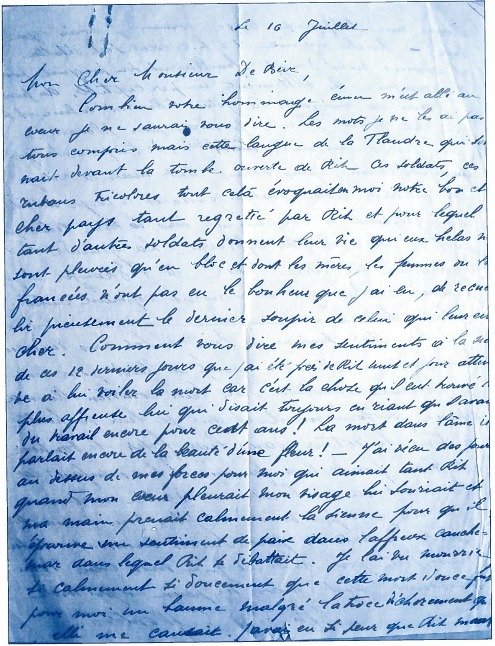 Le 16 Juillet
Mon Cher Monsieur De
Combien votre hommage ému m'est allé au
cœur je ne saurai vous dire. Les mots je ne les ai pas
tous compris mais cette langue de la Flandre qui
nait devant la tombe ouverte de Rik ces soldats, ces
rubans tricolores tout celà évoquait en moi notre bon et
cher pays tant regretté par Rik et pour lequel
tant d'autres soldats donnent leur vie qui eux hélas
sont pleurés qu'en bloc et dont les mères les femmes ou
fiancées n'ont pas eu le bonheur que j'ai eu, de
lir pieusement le dernier soupir de celui qui leur
cher. Comment vous dire mes sentiments à la
de ces 12 derniers jours que j'ai été près de Rik et
à lui voiler la mort car c'est la chose qu'il eut trouvé
plus affreuse lui qui disait toujours en riant qu'il
du travail encore pour cent ans! La mort dans l'âme
parlait encore de la beauté d'une fleur! — J'ai vécu des
au dessus de mes forces pour moi qui aimait tant Rik
quand mon cœur pleurait mon visage lui souriait et
ma main prenait calmement la sienne pour qu'il
éprouve un sentiment de paix dans l'affreux cauche-
mar dans lequel Rik se débattait. Je l'ai vu mourir
si calmement si doucement que cette mort douce
pour moi un baume malgré l'atroce déchirement
elle me causait. J'avais eu si peur que Rik